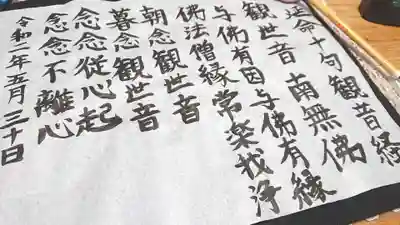 延命十句観音経
観世音 南無佛
与佛有因与佛有縁
佛法僧縁 常楽我浄
朝念観世音
暮念観世音
念念従心起
念念不離心
令和二年五月三十日